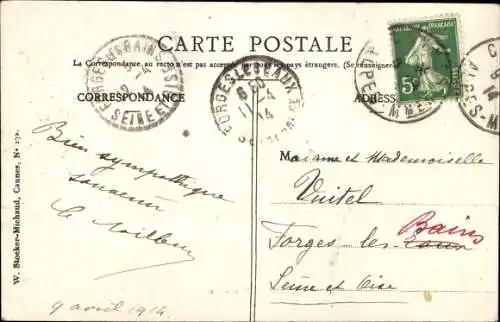 CARTE POSTALE
La Correspondance au recto n'est pas acceptée par tous les pays étrangers. (Se renseigner
CORRESPONDANCE
ADRES
Bien sympathique
souvenir
9 avril 1914
Madame et Mademoiselle
Vuitel
Forges-les-Eaux Bains
Seine et Oise
W. Stoecker-Michaud, Cannes, No 272.
FORGES-LES-BAINS
SEINE ET OISE
FORGES LES EAUX
11 -4
14
5c
ALPES-M